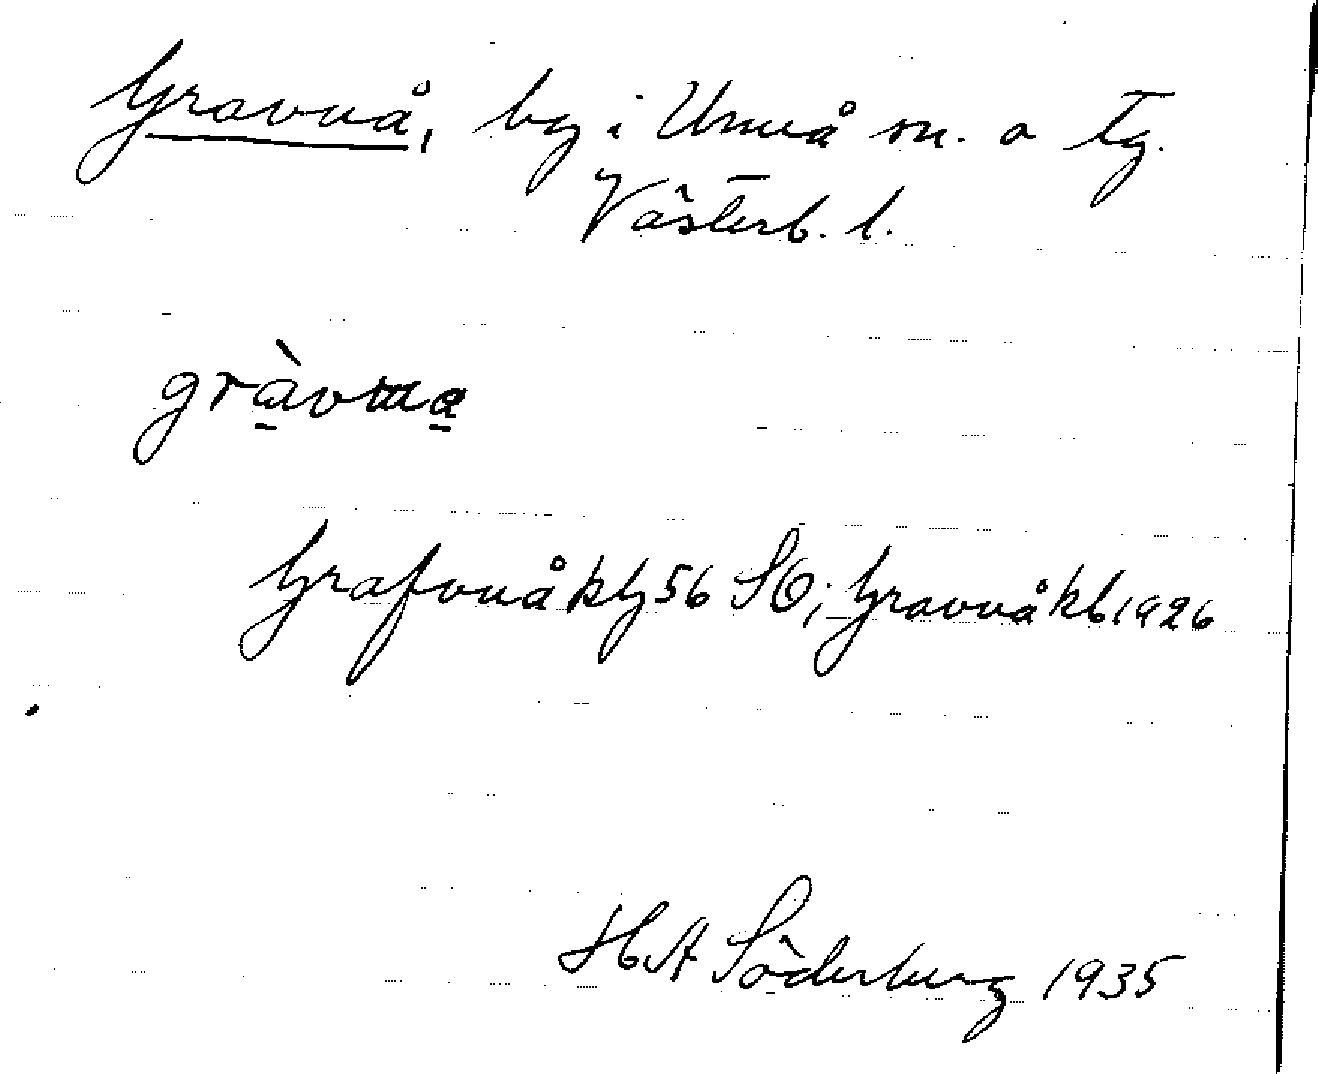 Gravnå, by i Umeå sn. o Tg.
Västerb. l.
gràvna
Grafvnå kbg 56 SO; Gravnå kb 1926
H A Söderberg 1935